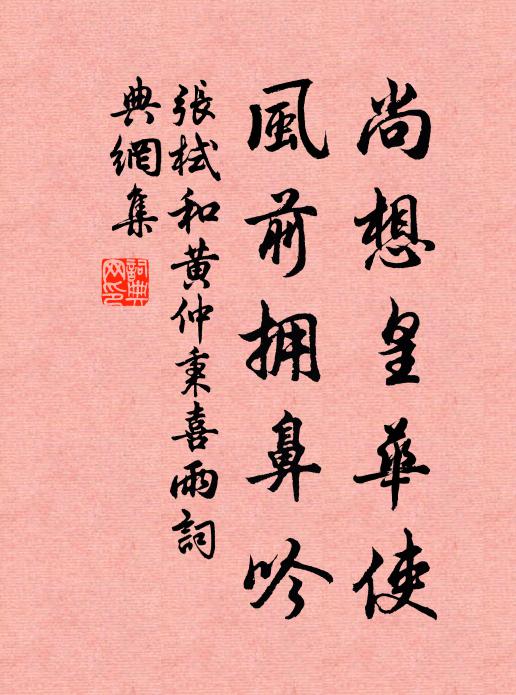 尚想皇華使
風前拥鼻吟
張栻和黄仲秉喜雨詞
典網集
詞典
网印